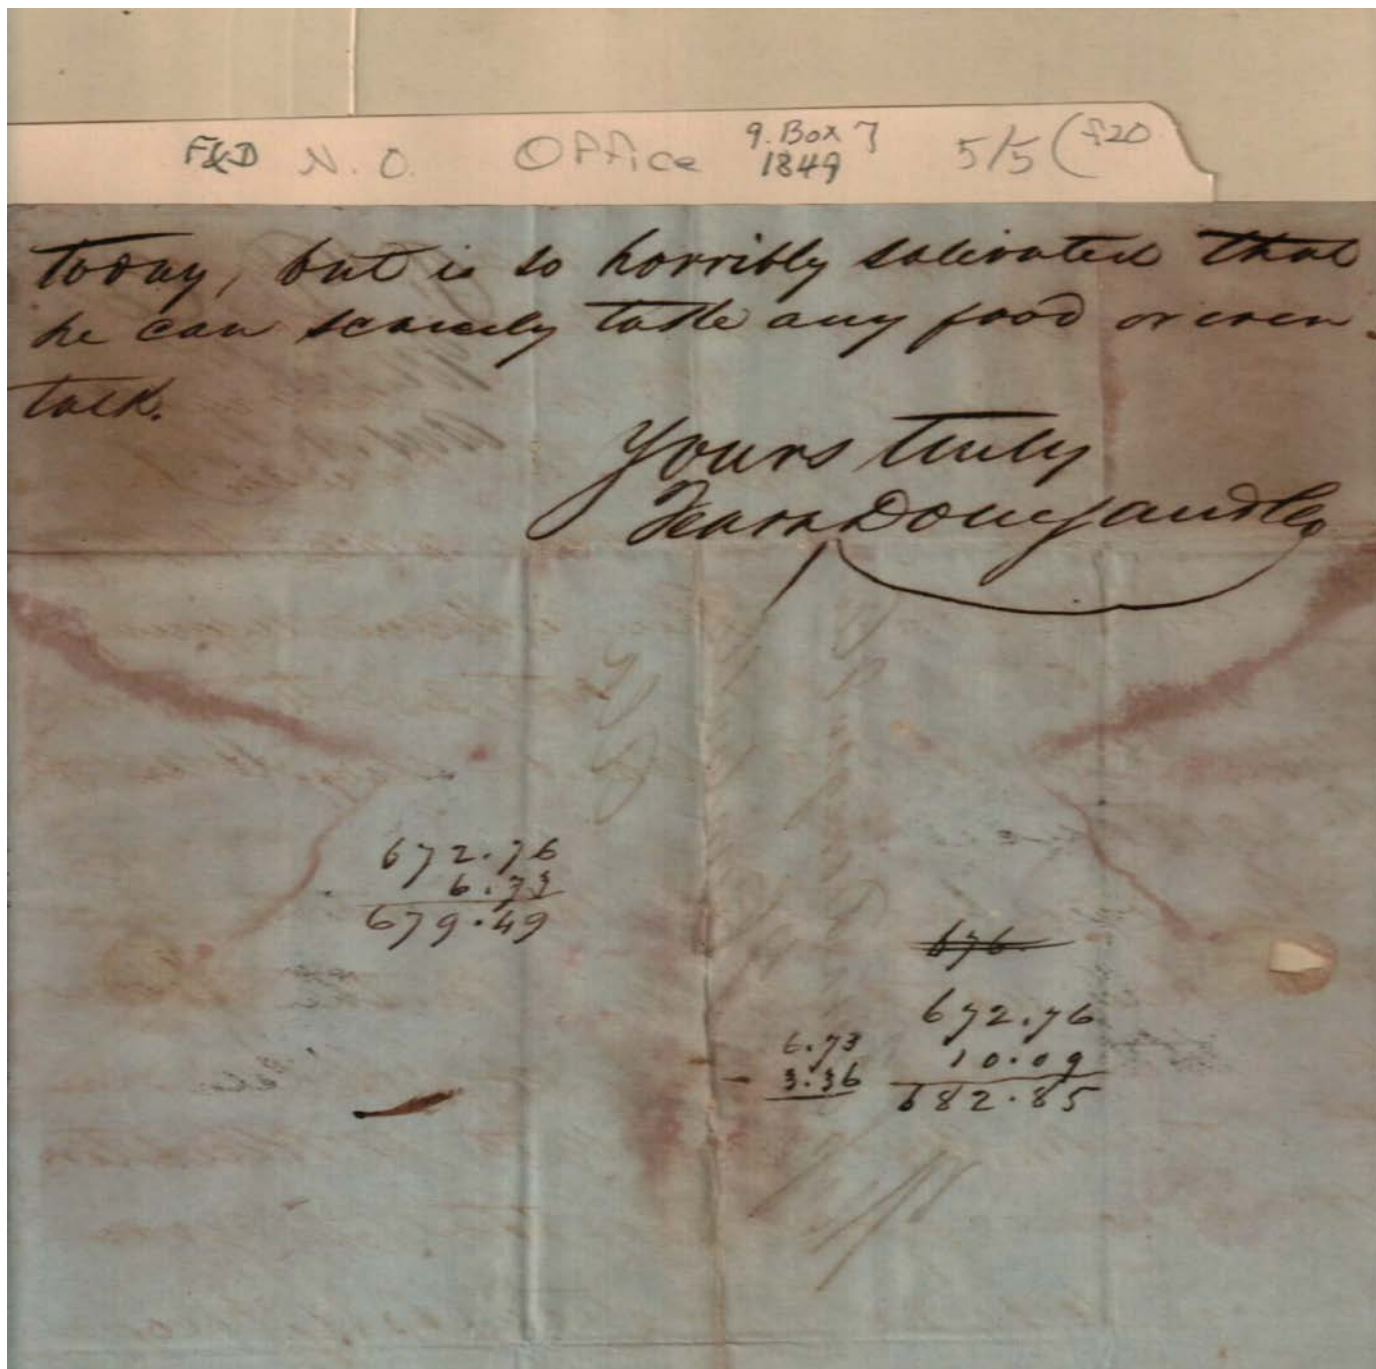 F&D N. O. Office 9. Box 7 1849 5/5 (f20
today, but is so horribly salivated that
he can scarcely take any food or even
talk.
Yours truly
Fearn Donegan & Co
672.76
6.73
679.49
676
672.76
10.09
682.85
6.73
3.36